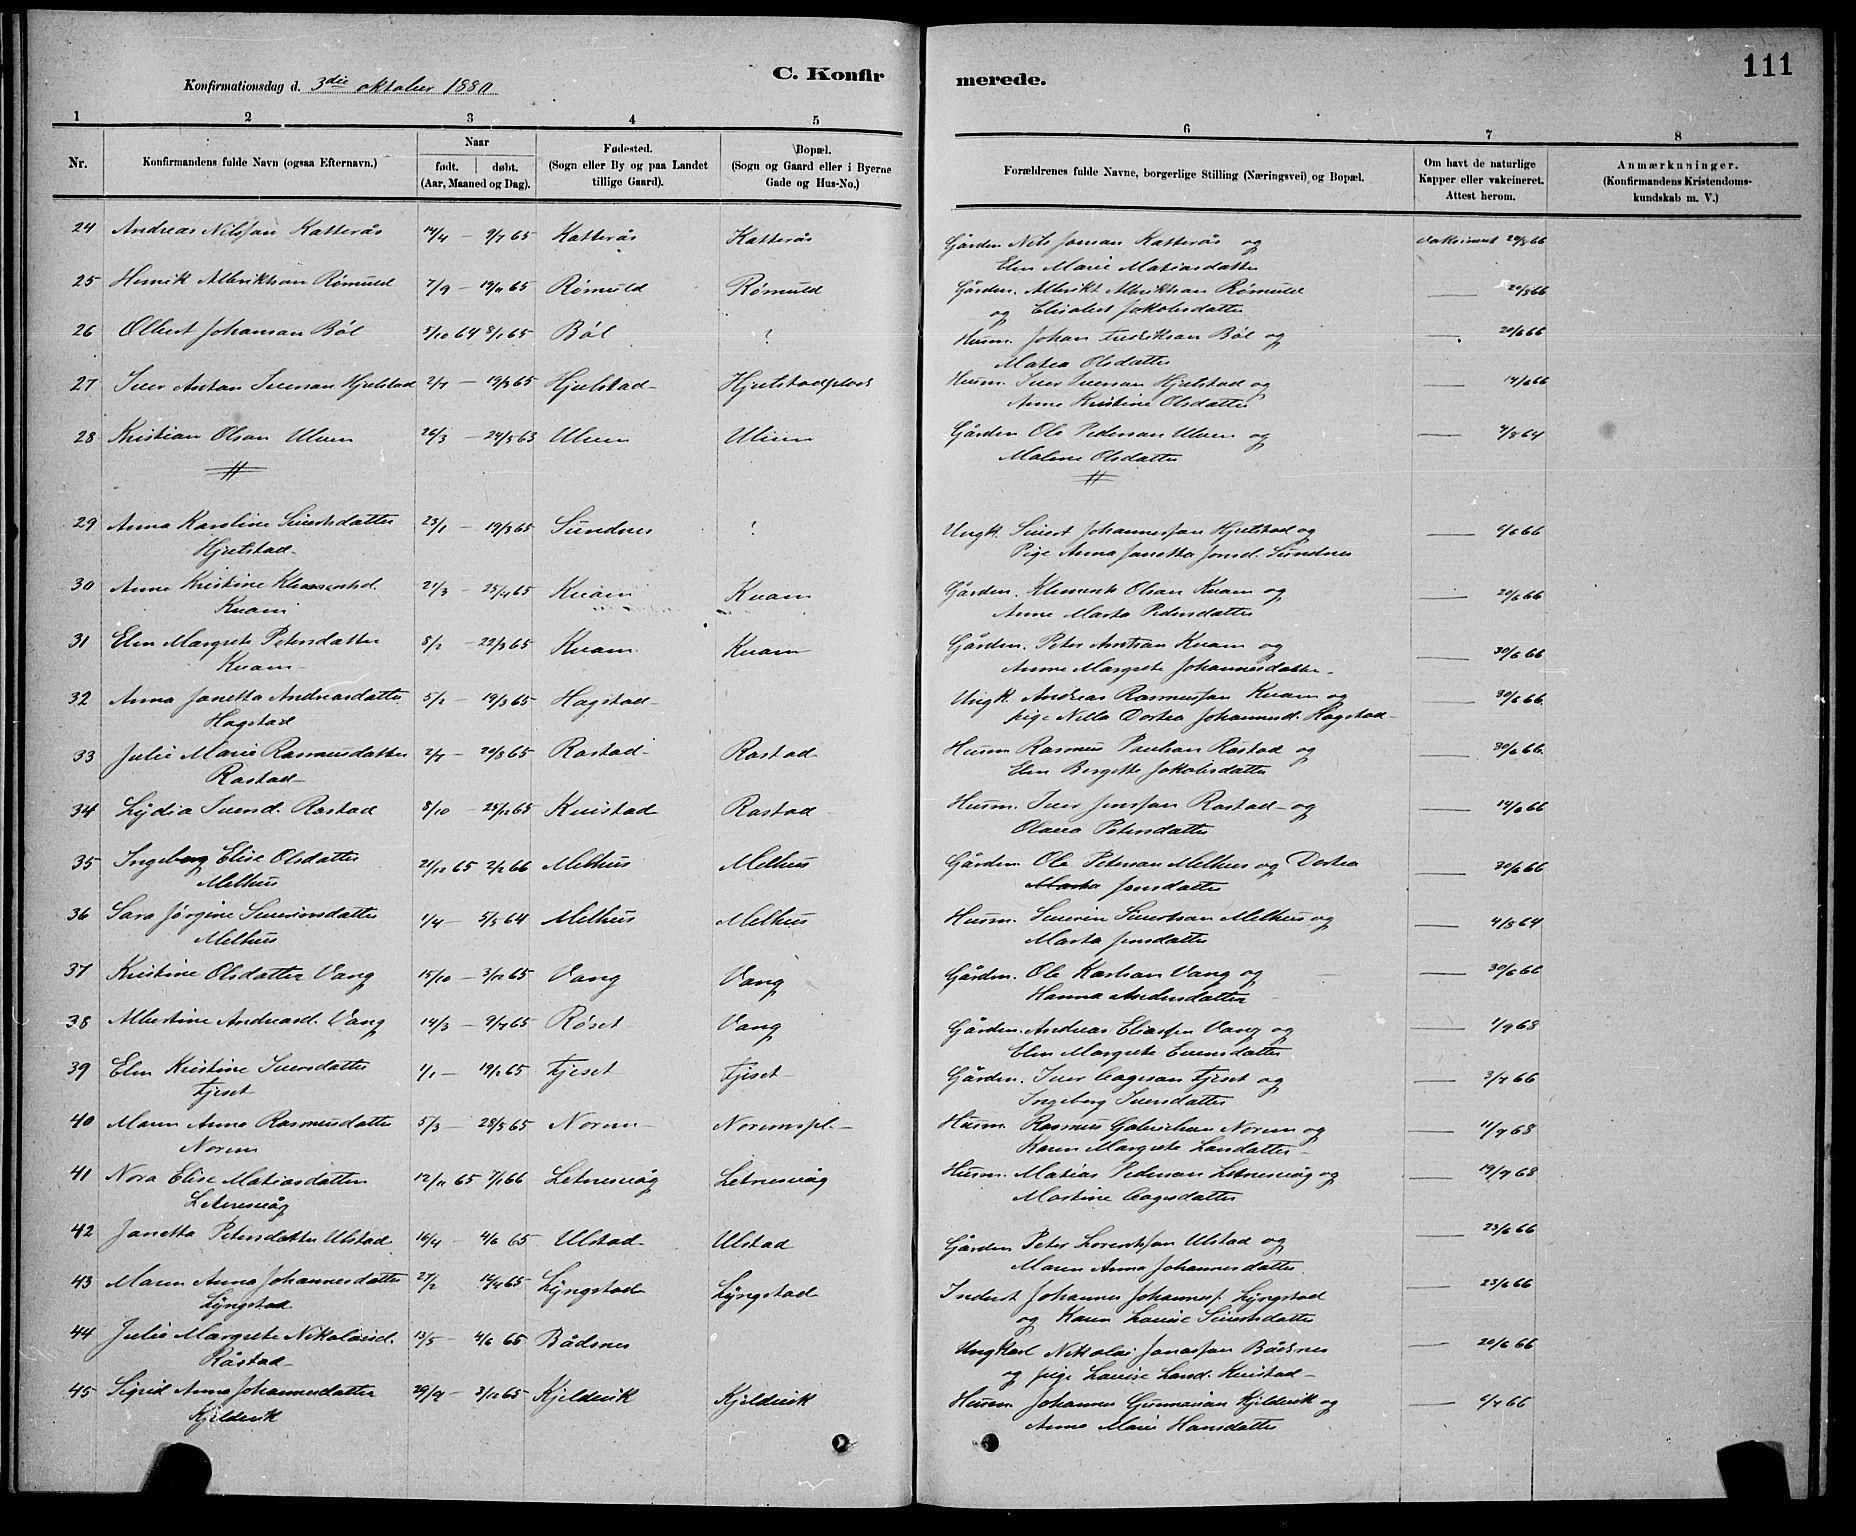 111
C. Konfirmerede.
Konfirmationsdag d. 3die oktober 1880
1 2 3 4 5 6 7 8
Nr.
Konfirmandens fulde Navn (ogsaa Efternavn.)
Naar
født. døbt.
(Aar, Maaned og Dag).
Fødested.
(Sogn eller By og paa Landet
tillige Gaard).
Bopæl.
(Sogn og Gaard eller i Byerne
Gade og Hus-No.)
Forældrenes fulde Navne, borgerlige Stilling (Næringsvei) og Bopæl.
Om havt de naturlige
Kapper eller vakcineret.
Attest herom.
Anmærkninger.
(Konfirmandens Kristendoms-
kundskab m. V.)
24 Andreas Nilssan Katterås 14/4 — 9/7 65 Katterås Katterås Gårdm. Nils Jonsan Katterås og vaksineret 20/8 66
Elen Marie Matiasdatter
25 Henrik Albriktsan Rømuld 7/9 — 19/11 65 Rømuld Rømuld Gårdm. Albrikt Albriktsan Rømuld — 20/8 66
og Elisabet Jakobsdatter
26 Olbert Johansan Bøl 5/10 64 8/1 65 Bøl ? Husm. Johan Fredriksan Bøl og — 20/6 66
Matea Olsdatter
27 Iver Antan Iversan Hjelstad 2/7 — 19/3 65 Hjelstad Hjelstadplads Husm. Iver Iversan Hjelstad og — 14/6 66
Anne Kristine Olsdatter
28 Kristian Olsan Ulven 26/3 — 24/5 63 Ulven Ulven Gårdm Ole Pedersan Ulven og — 4/8 64
Malene Olsdatter
29 Anna Karoline Sivertsdatter 23/1 — 19/3 65 Sundnes ? Ungk. Sivert Johannessan Hjelstad og — 6/6 66
Hjelstad Pige Anna Janetta Jonsd. Sundnes
30 Anne Kristine Klemetsd. 21/3 — 25/4 65 Kvam Kvam Gårdm. Klemets Olsan Kvam og — 20/6 66
Kvam Anne Marta Pedersdatter
31 Elen Margrete Petersdatter 8/2 — 22/3 65 Kvam Kvam Gårdm. Peter Antsan Kvam og — 30/6 66
Kvam Anne Margrete Johannesdatter
32 Anna Janetta Andreasdatter 5/2 — 19/3 65 Hagstad Ungk. Andreas Rasmussan Kvam og — 30/6 66.
Hagstad pige Nella Dortea Johannesd. Hagstad
33 Julie Marie Rasmusdatter 2/7 — 20/8 65 Rostad Rostad Husm Rasmus Paulsan Rostad og — 30/6 66.
Rostad Elen Bergitte Jakobsdatter
34 Lydia Iversd. Rostad 8/10 — 25/12 65 Kvistad Rostad Husm. Iver Jenssan Rostad og — 14/6 66
Olava Petersdatter
35 Ingeborg Elise Olsdatter 21/12 65 2/2 66 Melhus Melhus Gårdm. Ole Petersan Melhus og Dortea — 30/6 66
Melhus Marta Jonsdatter
36 Sara Jørgine Severinsdatter 1/4 — 5/5 64 Melhus Melhus Husm. Severin Sivertsan Melhus og — 4/8 64
Melhus Marta Jensdatter
37 Kristine Olsdatter Vang 15/10 — 3/12 65 Vang Vang Gårdm. Ole Karlsan Vang og — 30/6 66
Hanna Andersdatter
38 Albertine Andreasd. Vang 14/3 — 9/7 65 Røset Vang Gårdm. Andreas Eliassen Vang og — 1/9 68
Elen Margrete Evensdatter
39 Elen Kristine Iversdatter 1/1 — 19/2 65 Tjeset Tjeset Gårdm. Iver Aagesan Tjeset og — 3/7 66
Tjeset Ingeborg Iversdatter
40 Maren Anna Rasmusdatter 5/3 — 28/5 65 Norem Noremspl. Husm. Rasmus Gabrielsan Norem og — 11/7 68
Norem Karen Margrete Larsdatter
41 Nora Elise Matiasdatter 12/11 65 7/1 66 Letnesvåg Letnesvåg Husm. Matias Pedersan Letnesvåg og — 19/7 68
Letnesvåg Martine Aagesdatter
42 Janetta Petersdatter Ulstad 16/4 — 4/6 65 Ulstad Ulstad Gårdm Peter Lorentssan Ulstad og — 23/6 66
Maren Anna Johannesdatter
43 Maren Anna Johannesdatter 27/2 — 17/4 65 Lyngstad Lyngstad Inderst Johannes Johanness. Lyngstad — 23/6 66
Lyngstad og Karen Lovise Sivertsdatter
44 Julie Margrete Nikolaid. 13/5 — 4/6 65 Bådsnes Ungkarl Nikolai Jonassan Bådsnes — 20/6 66
Råstad og pige Lovise Larsd. Kvistad
45 Sigrid Anna Johannesdatter 29/9 — 3/12 65 Kjeldevik Kjeldevik Husm. Johannes Gunnarsan Kjeldevik og — 6/7 66
Kjeldevik Anna Marie Hansdatter